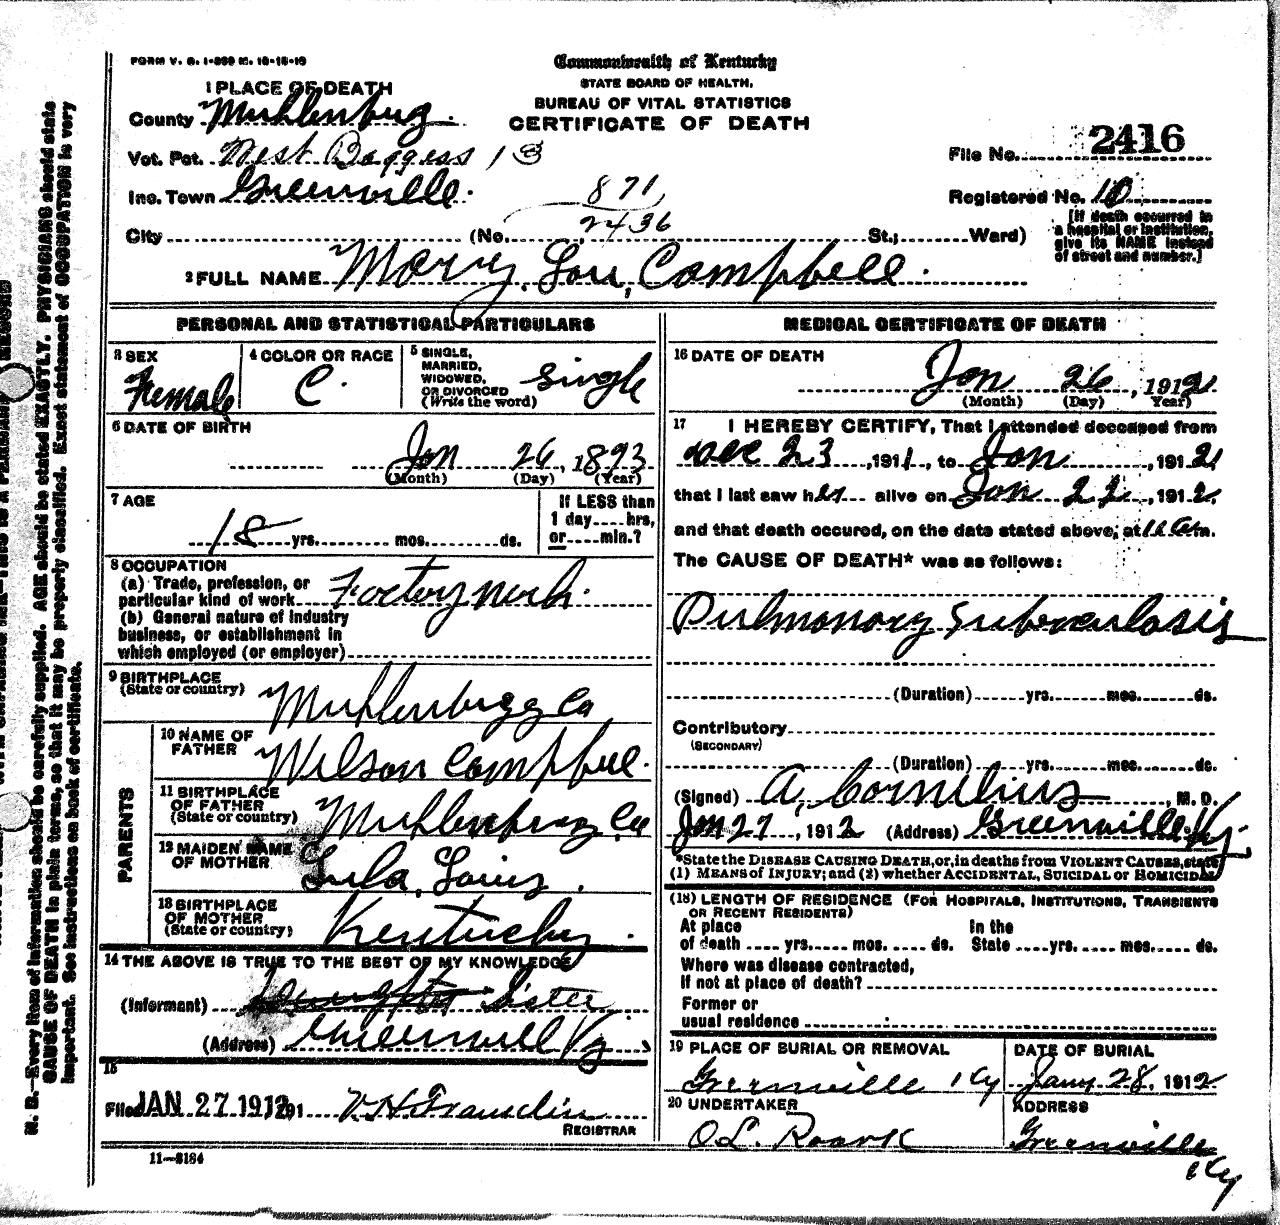 FORM V. S. 1-899 M. 10-15-10
Commonwealth of Kentucky
STATE BOARD OF HEALTH.
BUREAU OF VITAL STATISTICS
CERTIFICATE OF DEATH
1 PLACE OF DEATH
County Muhlenburg.
Vot. Pct. West Boggess 13
Inc. Town Greenville.
871
2436
City (No. St.; Ward)
File No. 2416
Registered No. 10
[If death occurred in
a hospital or institution,
give its NAME instead
of street and number.]
2 FULL NAME Mary Lou Campbell.
PERSONAL AND STATISTICAL PARTICULARS
3 SEX
Female
4 COLOR OR RACE
C.
5 SINGLE,
MARRIED,
WIDOWED,
OR DIVORCED
(Write the word)
Single
6 DATE OF BIRTH
Jan 26, 1893
(Month) (Day) (Year)
7 AGE
18 yrs. mos. ds.
If LESS than
1 day hrs,
or min.?
8 OCCUPATION
(a) Trade, profession, or
particular kind of work Factory work.
(b) General nature of industry
business, or establishment in
which employed (or employer)
9 BIRTHPLACE
(State or country)
Muhlenburg Co
PARENTS
10 NAME OF
FATHER
Wilson Campbell.
11 BIRTHPLACE
OF FATHER
(State or country)
Muhlenburg Co
12 MAIDEN NAME
OF MOTHER
Lula Louis.
13 BIRTHPLACE
OF MOTHER
(State or country)
Kentucky.
14 THE ABOVE IS TRUE TO THE BEST OF MY KNOWLEDGE
(Informant) Daughter Sister
(Address) Greenvill Ky
15
Filed JAN 27 1912 191 Registrar
11-3184
MEDICAL CERTIFICATE OF DEATH
16 DATE OF DEATH
Jan 26, 1912
(Month) (Day) Year)
17 I HEREBY CERTIFY, That I attended deceased from
Dec 23, 1911, to Jan 1912,
that I last saw her alive on Jan 22, 1912,
and that death occured, on the date stated above, at m.
The CAUSE OF DEATH* was as follows:
Pulmonary Tuberculosis
(Duration) yrs. mos. ds.
Contributory
(SECONDARY)
(Duration) yrs. mos. ds.
(Signed) A. Cornelius, M. D.
Jan 27, 1912 (Address) Greenville Ky.
*State the DISEASE CAUSING DEATH, or, in deaths from VIOLENT CAUSES, state
(1) MEANS OF INJURY; and (2) whether ACCIDENTAL, SUICIDAL or HOMICIDAL
(18) LENGTH OF RESIDENCE (FOR HOSPITALS, INSTITUTIONS, TRANSIENTS
OR RECENT RESIDENTS)
At place In the
of death yrs. mos. ds. State yrs. mos. ds.
Where was disease contracted,
If not at place of death?
Former or
usual residence
19 PLACE OF BURIAL OR REMOVAL
Greenville Ky
DATE OF BURIAL
Jany 28, 1912
20 UNDERTAKER
O L. Roark
ADDRESS
Greenville
Ky
N. B.—Every item of information should be carefully supplied. AGE should be stated EXACTLY. PHYSICIANS should state
CAUSE OF DEATH in plain terms, so that it may be properly classified. Exact statement of OCCUPATION is very
important. See instructions on back of certificate.